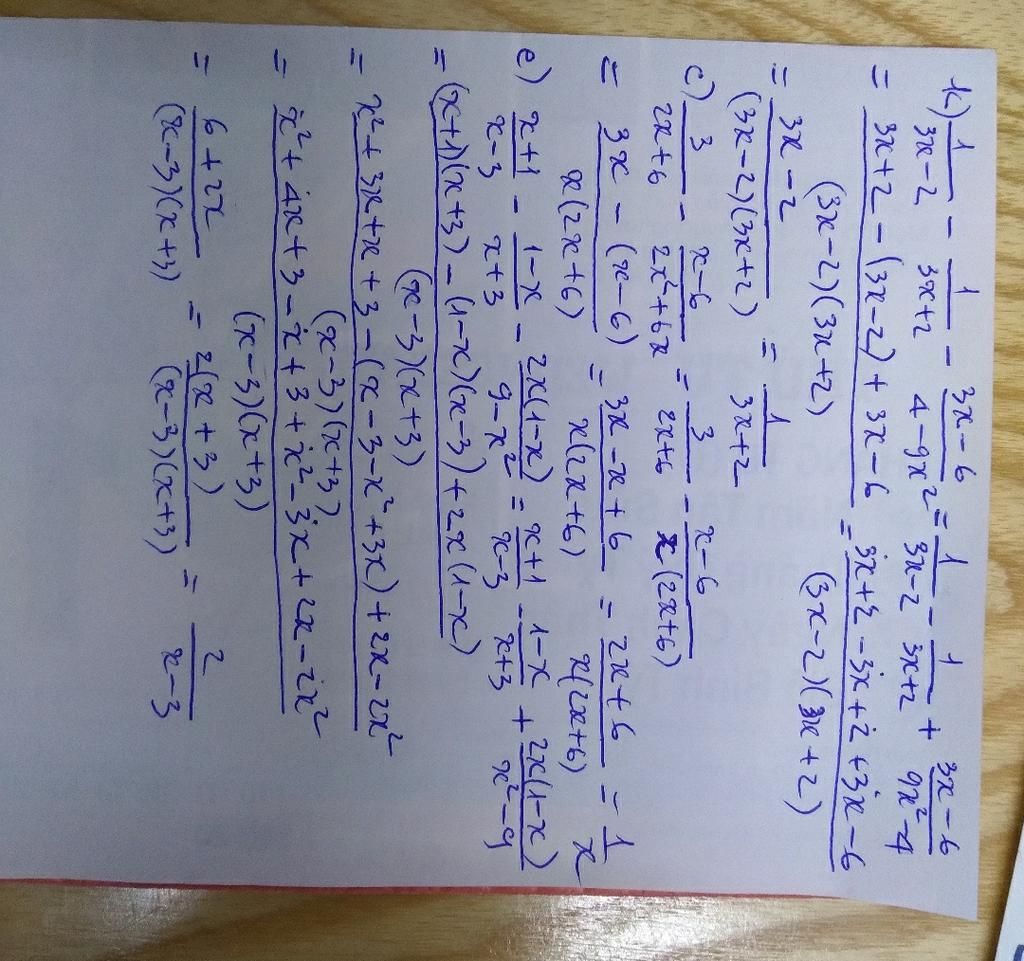 k) 1/(3x-2) - 1/(3x+2) - (3x-6)/(4-9x²) = 1/(3x-2) - 1/(3x+2) + (3x-6)/(9x²-4)
= (3x+2-(3x-2)+3x-6)/((3x-2)(3x+2)) = (3x+2-3x+2+3x-6)/((3x-2)(3x+2))
= (3x-2)/((3x-2)(3x+2)) = 1/(3x+2)
c) 3/(2x+6) - (x-6)/(2x²+6x) = 3/(2x+6) - (x-6)/(x(2x+6))
= (3x-(x-6))/(x(2x+6)) = (3x-x+6)/(x(2x+6)) = (2x+6)/(x(2x+6)) = 1/x
e) (x+1)/(x-3) - (1-x)/(x+3) - (2x(1-x))/(9-x²) = (x+1)/(x-3) - (1-x)/(x+3) + (2x(1-x))/(x²-9)
= ((x+1)(x+3)-(1-x)(x-3)+2x(1-x))/((x-3)(x+3))
= (x²+3x+x+3-(x-3-x²+3x)+2x-2x²)/((x-3)(x+3))
= (x²+4x+3-x+3+x²-3x+2x-2x²)/((x-3)(x+3))
= (6+2x)/((x-3)(x+3)) = (2(x+3))/((x-3)(x+3)) = 2/(x-3)